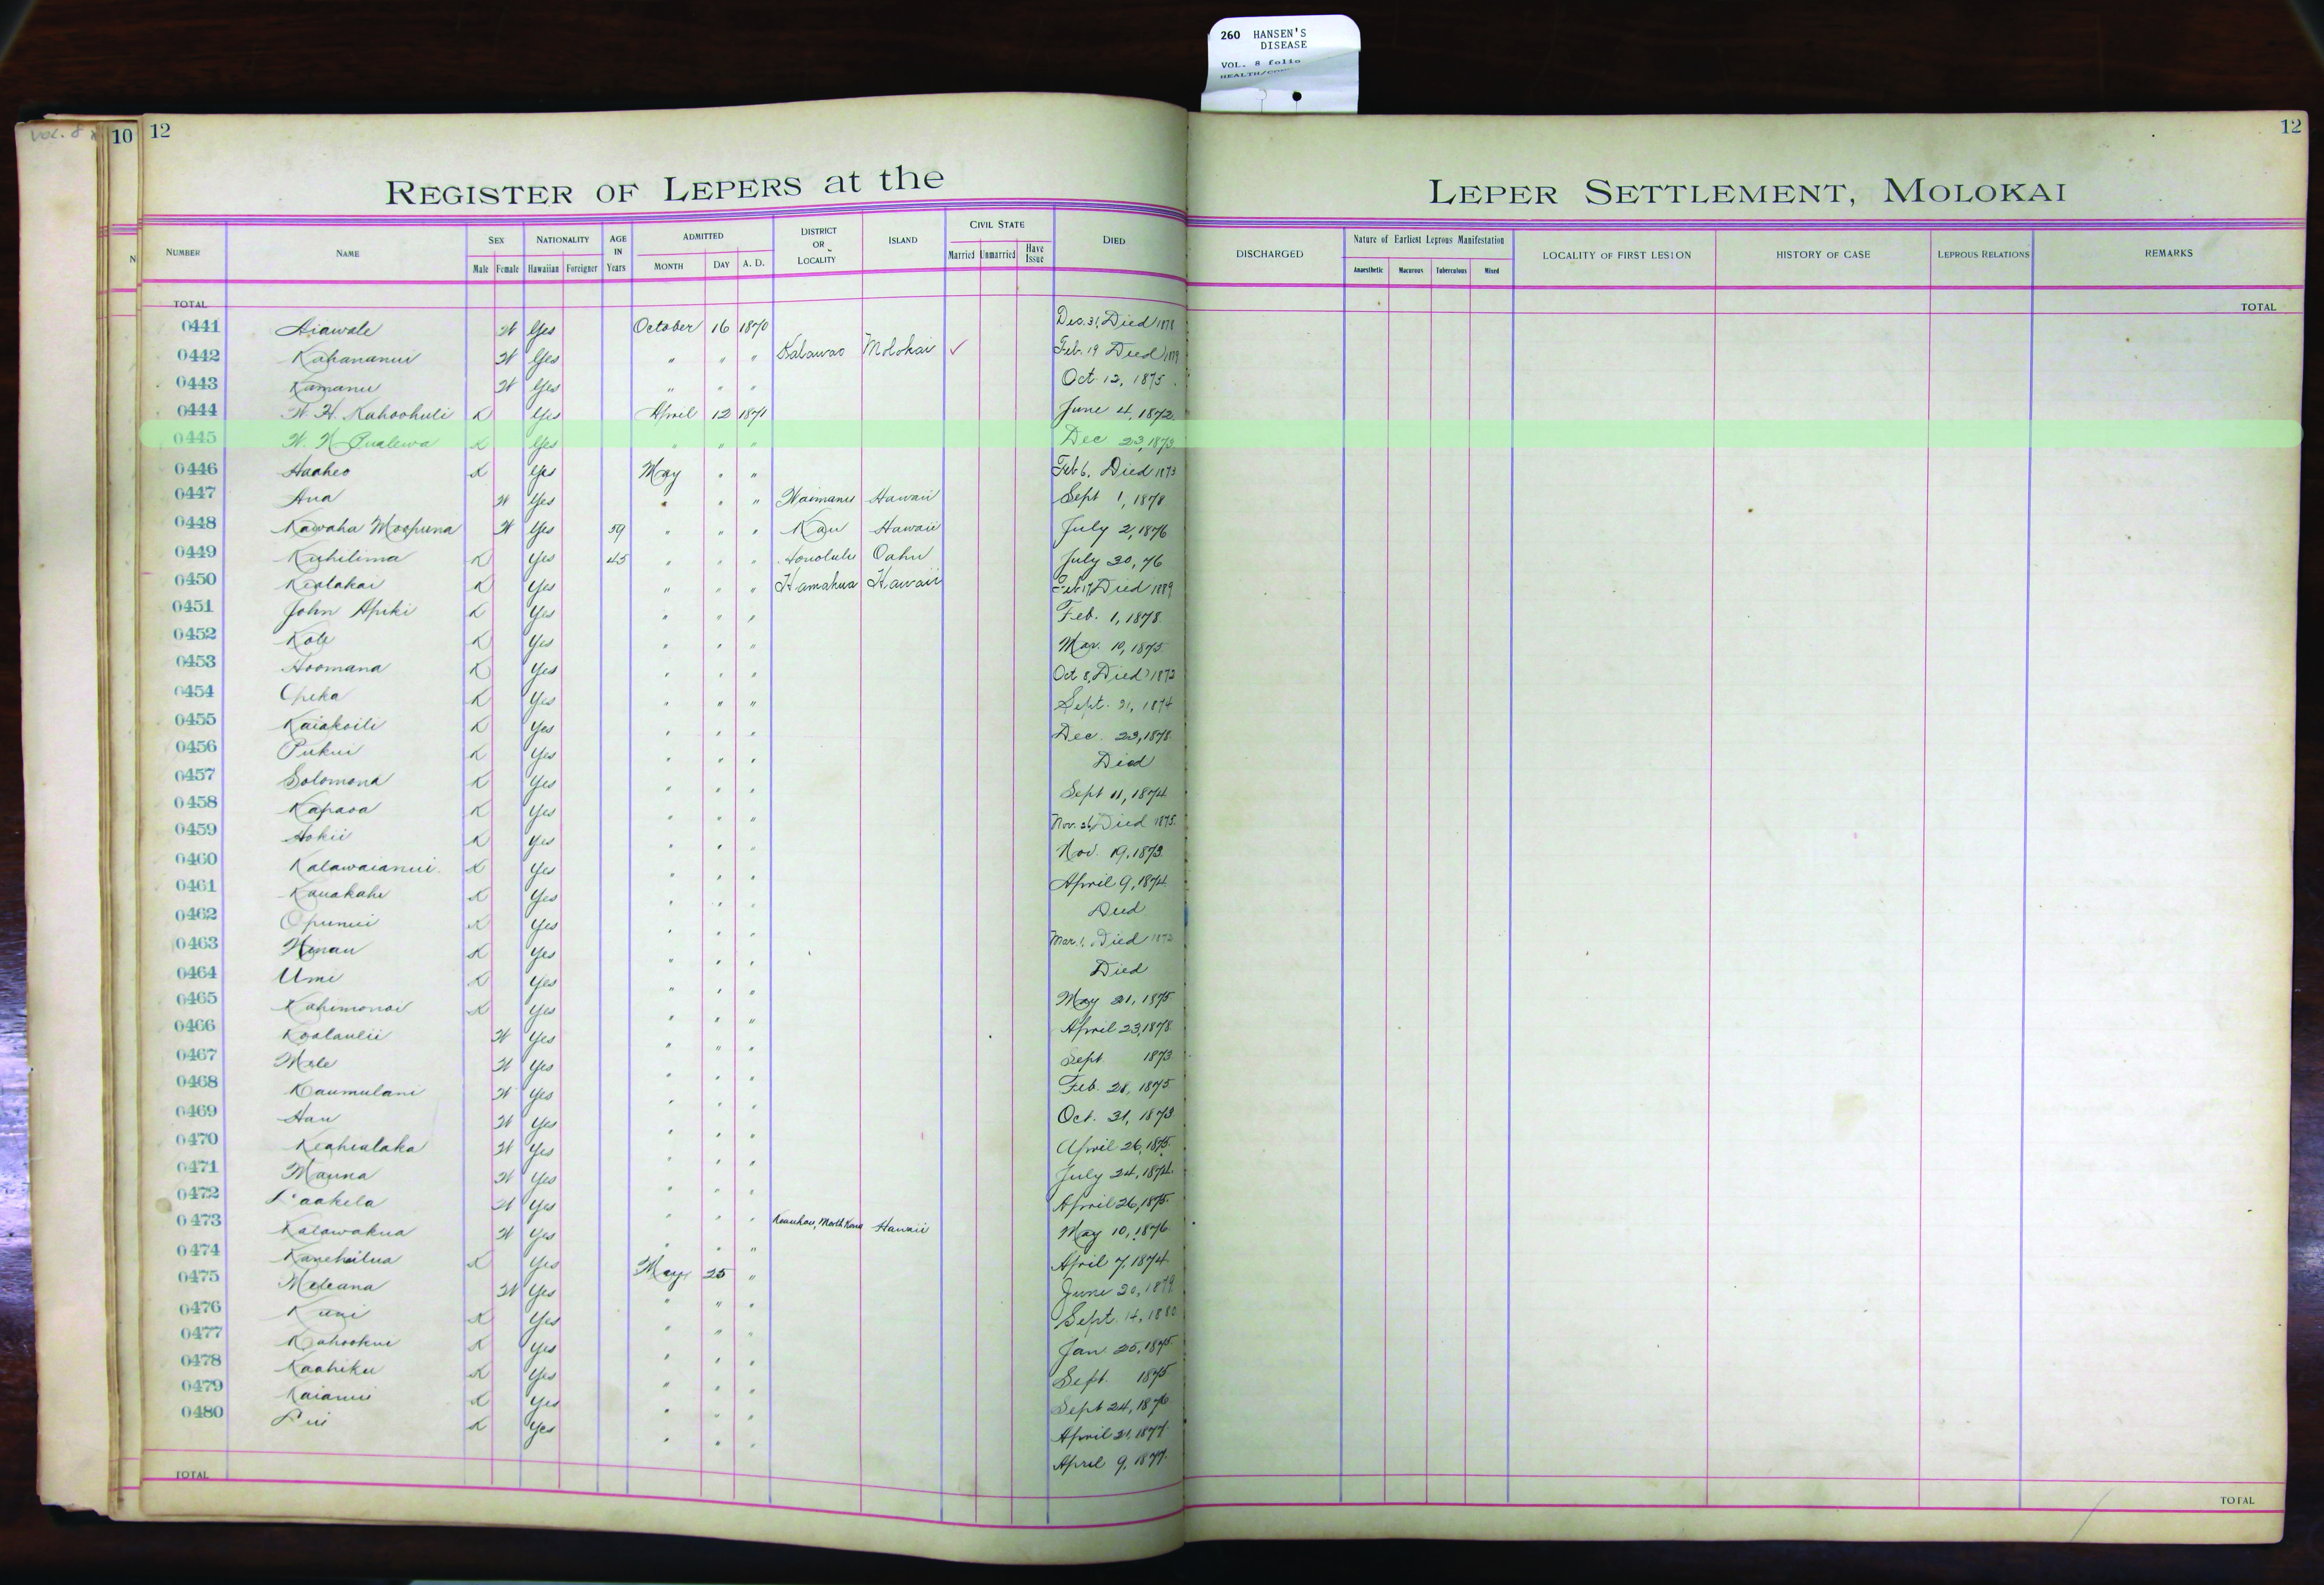 260 HANSEN'S
DISEASE
VOL. 8 folio
VOL. 8
10 12 12
REGISTER OF LEPERS at the LEPER SETTLEMENT, MOLOKAI
NUMBER NAME SEX NATIONALITY AGE IN Years ADMITTED DISTRICT OR LOCALITY ISLAND CIVIL STATE DIED DISCHARGED Nature of Earliest Leprous Manifestation LOCALITY OF FIRST LESION HISTORY OF CASE LEPROUS RELATIONS REMARKS
Male Female Hawaiian Foreigner MONTH DAY A. D. Married Unmarried Have Issue Anaesthetic Macurous Tuberculous Mixed
TOTAL TOTAL
0441 Aiawale W Yes October 16 1870 Dec. 31, Died 1878
0442 Kahananui W Yes " " " Kalawao Molokai ✓ Feb. 19 Died
0443 Kamanu W Yes " " " Oct. 12, 1875
0444 W. H. Kahoohuli K Yes April 12 1871 June 4, 1872
0445 W. K. Pualewa K Yes " " " Dec 23, 1873
0446 Haaheo K Yes May " " Feb 6, Died 1873
0447 Ana W Yes " " " Waimanu Hawaii Sept 1, 1878
0448 Kawaha Moopuna W Yes 59 " " " Kau Hawaii July 2, 1876
0449 Kuhilima K Yes 45 " " " Honolulu Oahu July 30, 76
0450 Kealakai K Yes " " " Hamakua Hawaii Feb 17, Died 1889
0451 John Apiki K Yes " " " Feb. 1, 1878
0452 Kole K Yes " " " Mar. 10, 1875
0453 Hoomana K Yes " " " Oct 8, Died 1873
0454 Opeka K Yes " " " Sept. 21, 1874
0455 Kaiakoili K Yes " " " Dec. 23, 1878
0456 Pukui K Yes " " " Died
0457 Solomona K Yes " " " Sept 11, 1874
0458 Kapaoa K Yes " " " Nov. 26, Died 1875
0459 Hokii K Yes " " " Nov. 19, 1873
0460 Kalawaianui K Yes " " " April 9, 1874
0461 Kauakahi K Yes " " " Died
0462 Opunui K Yes " " " Mar. 1, Died
0463 Hinau K Yes " " " Died
0464 Umi K Yes " " " May 21, 1875
0465 Kahimonai K Yes " " " April 23, 1878
0466 Koolaulii W Yes " " " Sept 1873
0467 Mele W Yes " " " Feb. 28, 1875
0468 Kaumulani W Yes " " " Oct. 31, 1873
0469 Hau W Yes " " " April 26, 1875
0470 Keahialaka W Yes " " " July 24, 1874
0471 Mauna W Yes " " " April 26, 1875
0472 Paakela W Yes " " " Keauhou, North Kona Hawaii May 10, 1876
0473 Kalawakua W Yes " " " April 7, 1874
0474 Kanehailua K Yes May 25 " June 20, 1879
0475 Meleana W Yes " " " Sept. 14, 1880
0476 Kuni K Yes " " " Jan 25, 1875
0477 Kahookui K Yes " " " Sept. 1875
0478 Kaahiku K Yes " " " Sept 24, 1876
0479 Kaianui K Yes " " " April 21, 1877
0480 Pui K Yes " " " April 9, 1877
TOTAL TOTAL